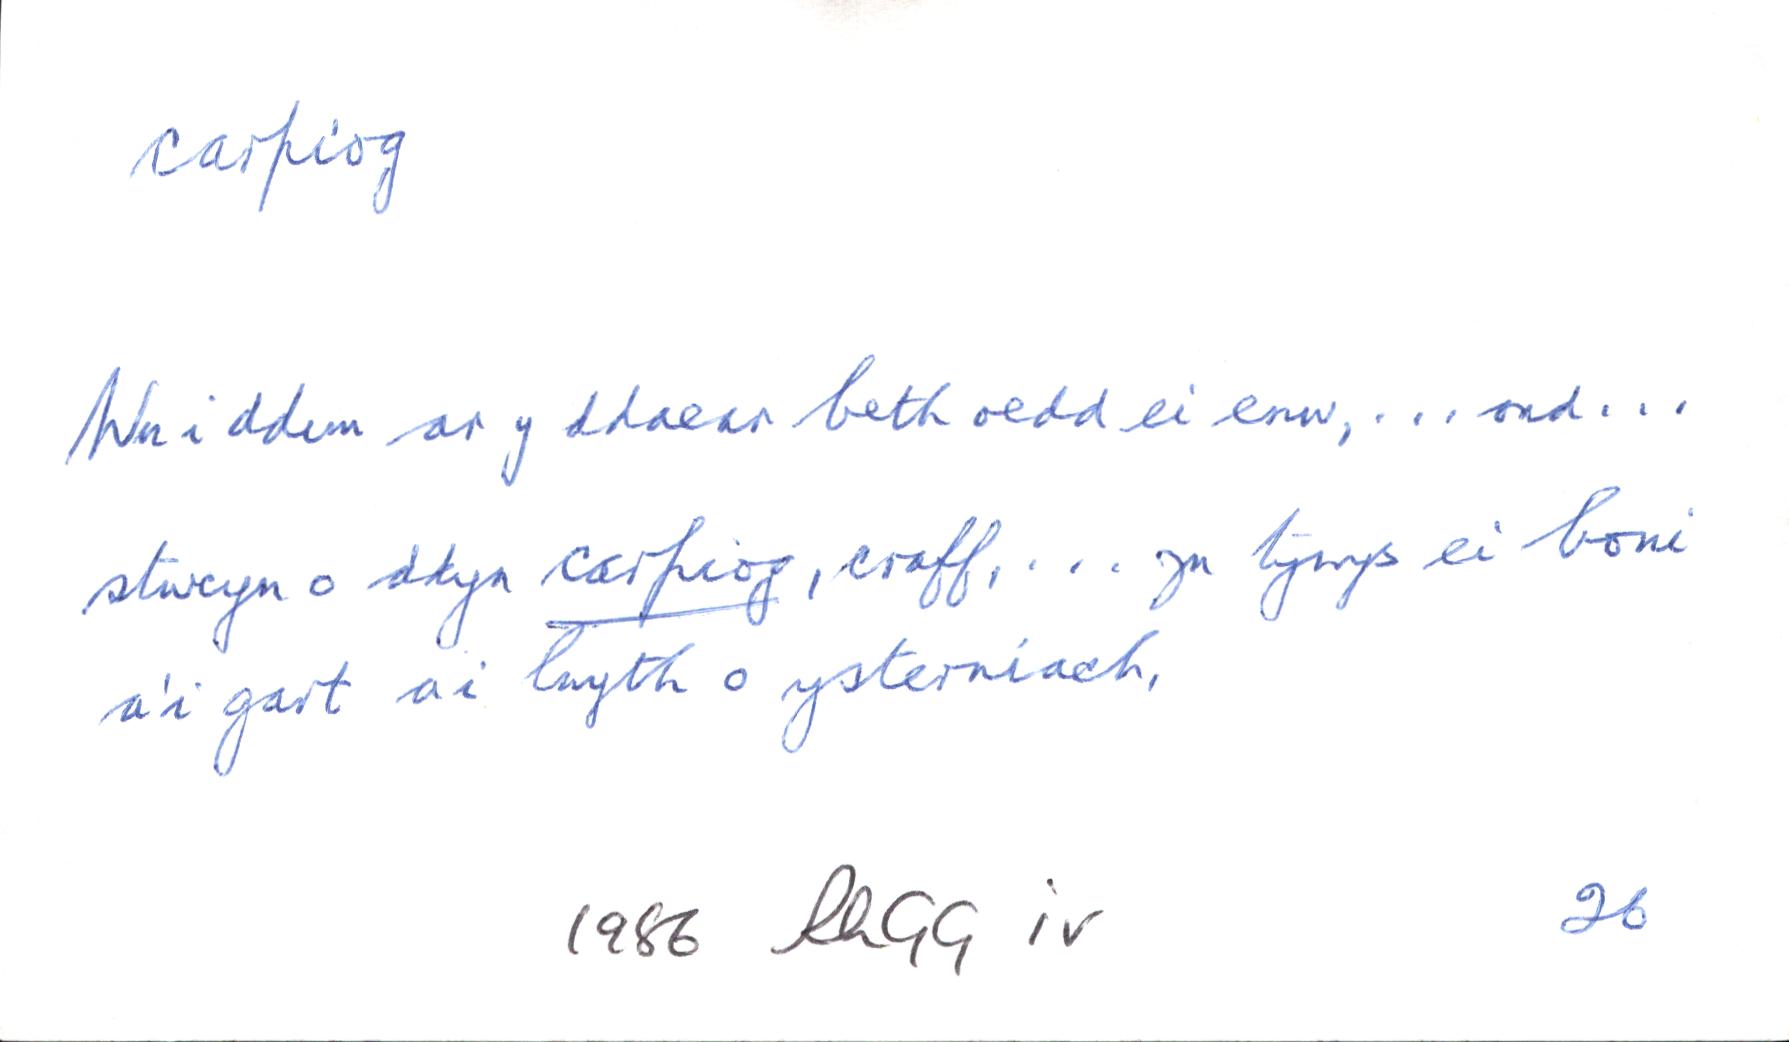 carpiog
Wn i ddim ar y ddaear beth oedd ei enw, ... ond ...
stwcyn o ddyn carpiog, craff, .... yn tywys ei boni
a'i gart a'i lwyth o ysterniach,
1986 iv 26